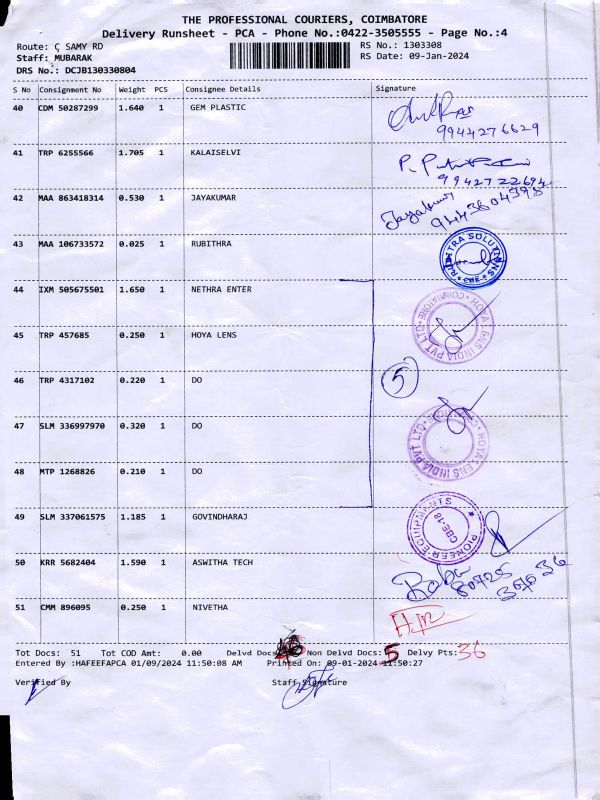 THE PROFESSIONAL COURIERS, COIMBATORE
Delivery Runsheet - PCA - Phone No.:0422-3505555 - Page No.:4
Route: C SAMY RD
RS No.: 1303308
Staff: MUBARAK
RS Date: 09-Jan-2024
DRS No.: DCJB130330804
S No Consignment No Weight PCS Consignee Details Signature
40 CDM 50287299 1.640 1 GEM PLASTIC
9944276629
41 TRP 6255566 1.705 1 KALAISELVI
9942722694
42 MAA 863418314 0.530 1 JAYAKUMAR
Jayakumar
43 MAA 106733572 0.025 1 RUBITHRA
44 IXM 505675501 1.650 1 NETHRA ENTER
HOYA LENS INDIA PVT LTD COIMBATORE
45 TRP 457685 0.250 1 HOYA LENS
46 TRP 4317102 0.220 1 DO
5
47 SLM 336997970 0.320 1 DO
HOYA LENS INDIA PVT LTD
48 MTP 1268826 0.210 1 DO
49 SLM 337061575 1.185 1 GOVINDHARAJ
PIONEER EQUIPMENTS CBE-18
50 KRR 5682404 1.590 1 ASWITHA TECH
Babu
51 CMM 896095 0.250 1 NIVETHA
Tot Docs: 51 Tot COD Amt: 0.00 Delvd Docs: Non Delvd Docs: 5 Delvy Pts: 36
Entered By :HAFEEFAPCA 01/09/2024 11:50:08 AM Printed On: 09-01-2024 11:50:27
Verified By Staff Signature